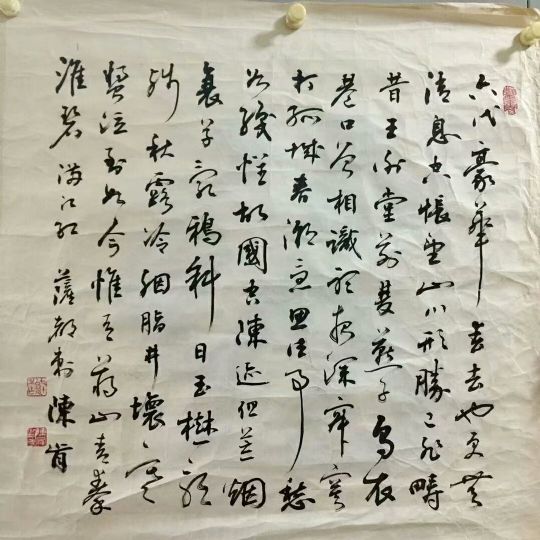 六代豪華春去也更無
消息空悵望山川形勝已非疇
昔王謝堂前雙燕子烏衣
巷口曾相識聽夜深寂寞
打孤城春潮急思往事愁
如織懷故國空陳迹但荒烟
衰草亂鴉斜日玉樹歌
殘秋露冷胭脂井壞寒
螿泣到如今惟有蔣山青秦
淮碧 滿江紅 薩都剌 陳